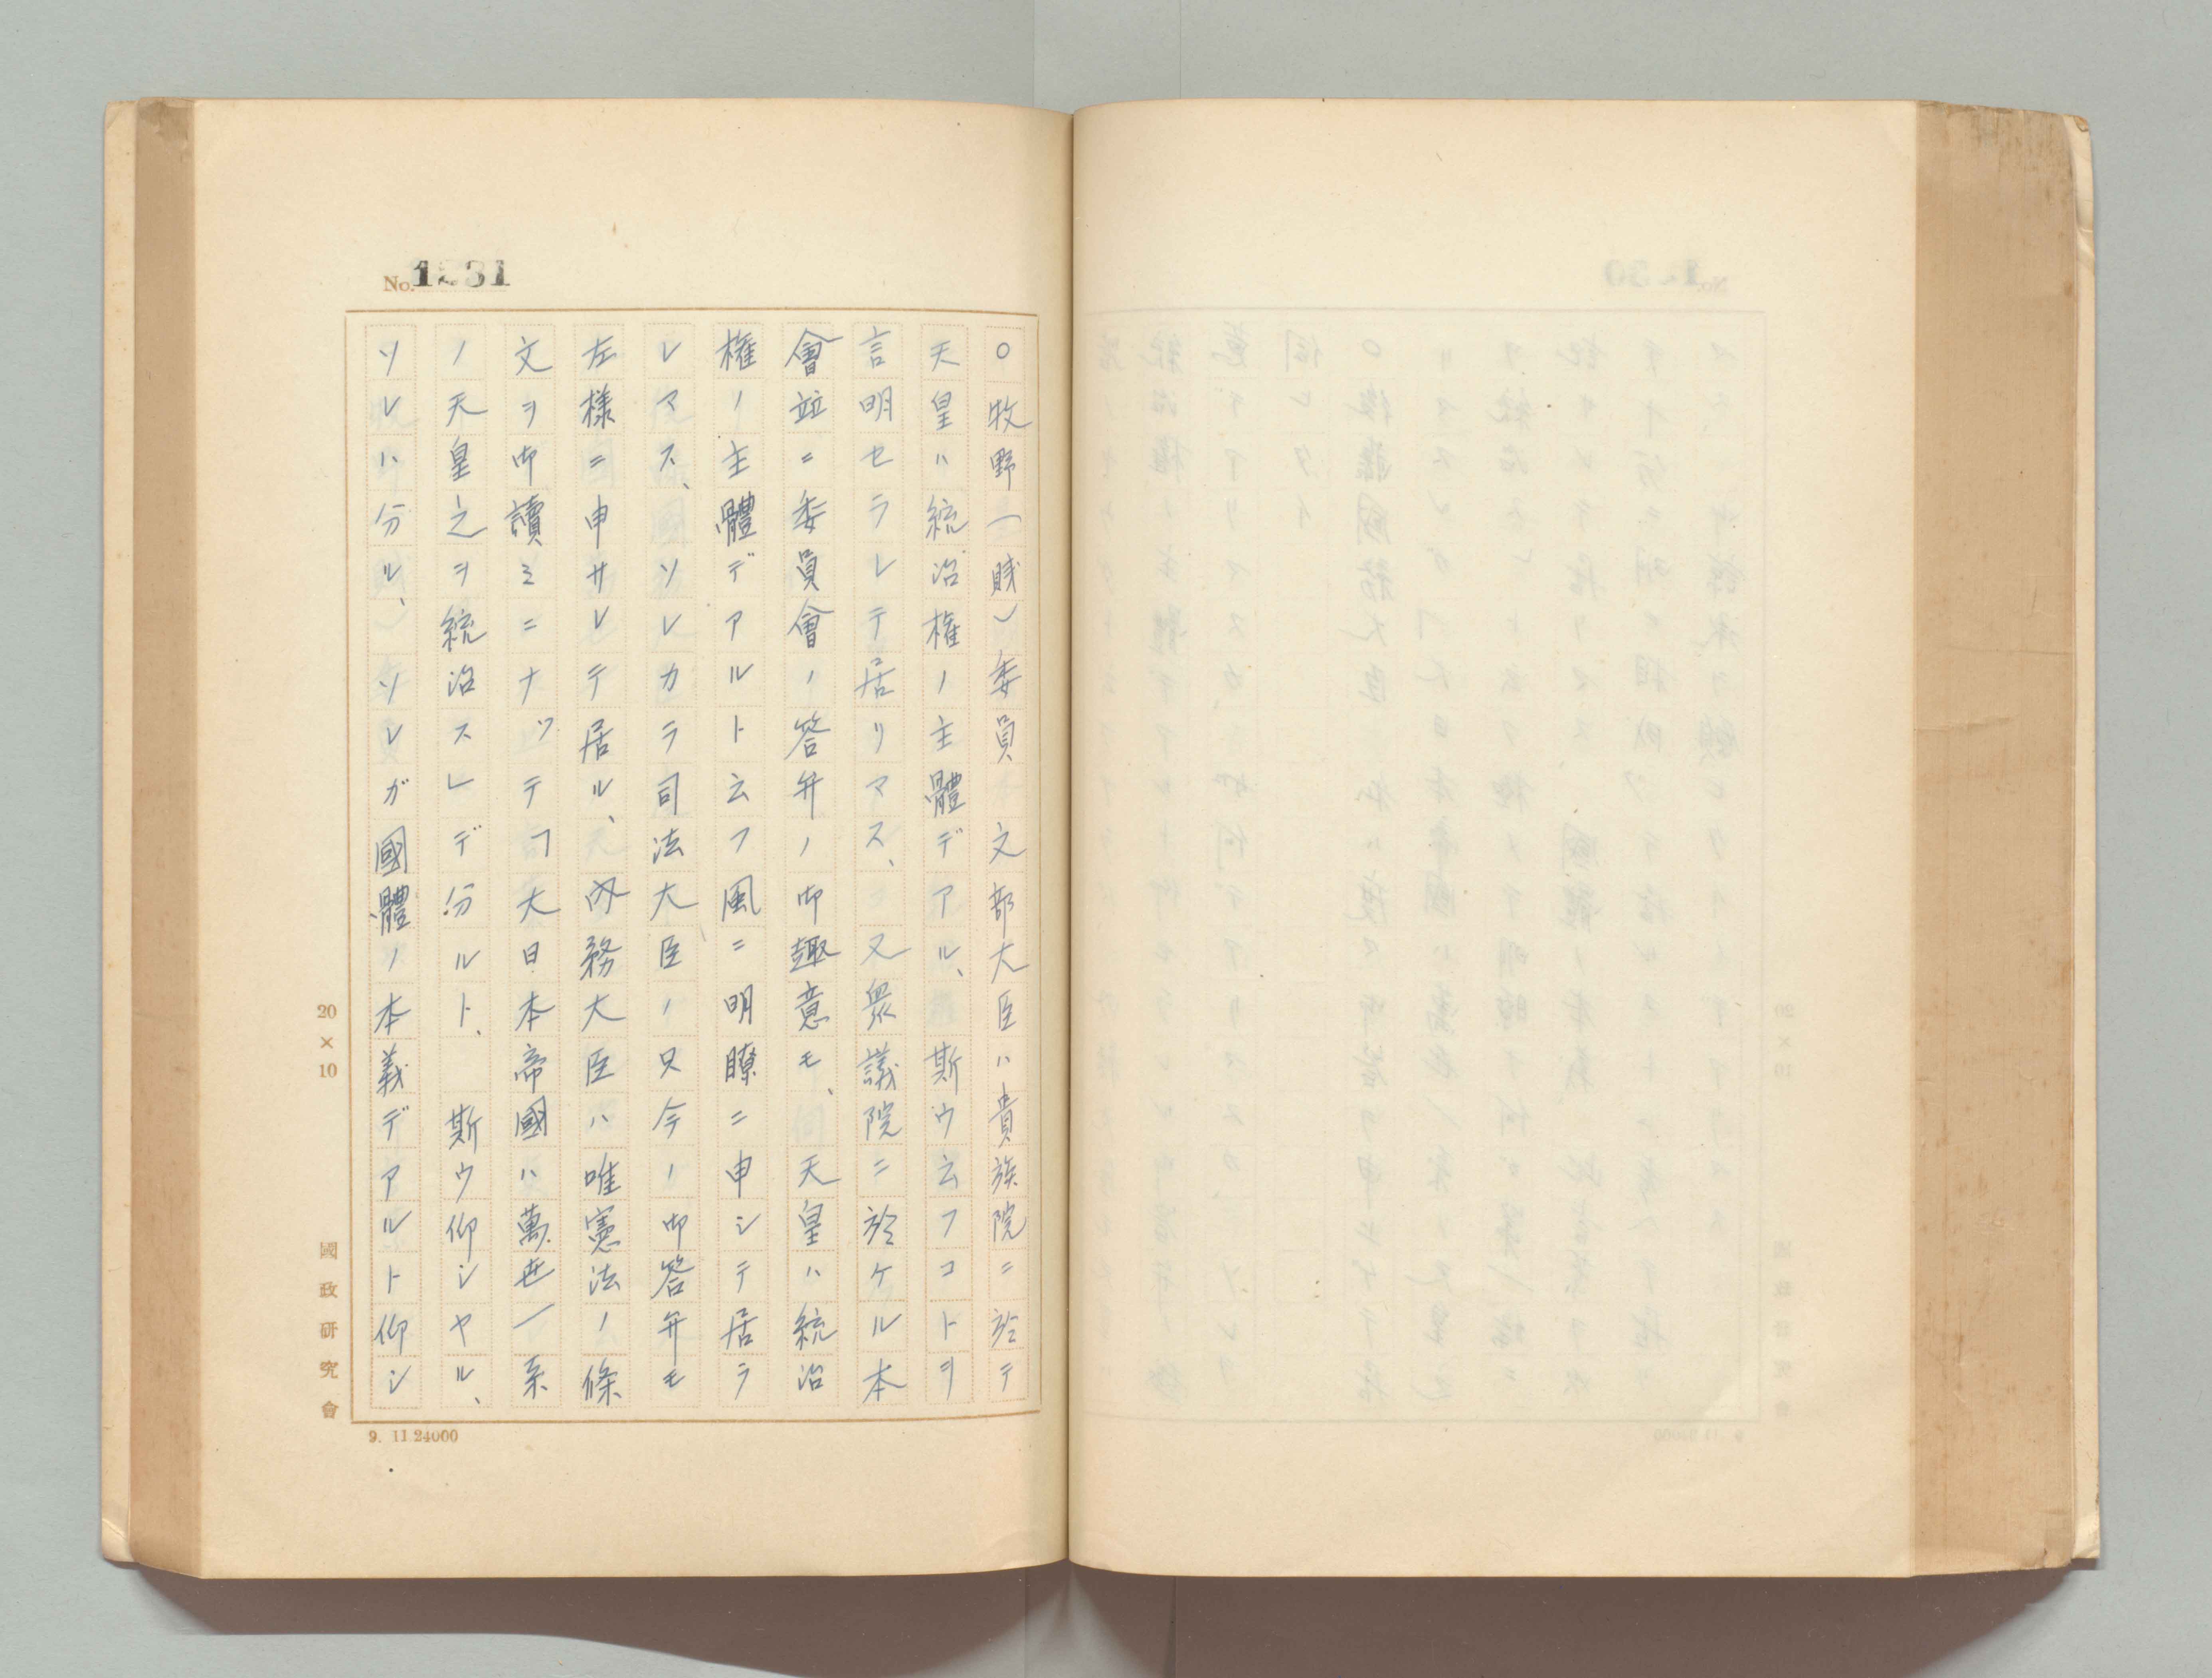 No.1231
○牧野(賤)委員 文部大臣ハ貴族院ニ於テ
天皇ハ統治權ノ主體デアル、斯ウ云フコトヲ
言明セラレテ居リマス、又衆議院ニ於ケル本
會竝ニ委員會ノ答弁ノ御趣意モ、天皇ハ統治
權ノ主體デアルト云フ風ニ明瞭ニ申シテ居ラ
レマス、ソレカラ司法大臣ノ只今ノ御答弁モ
左様ニ申サレテ居ル、内務大臣ハ唯憲法ノ條
文ヲ御讀ミニナツテ「大日本帝國ハ萬世一系
ノ天皇之ヲ統治ス」レデ分ルト、斯ウ仰シヤル、
ソレハ分ル、ソレガ國體ノ本義デアルト仰シ
20×10
國政研究會
9. 11 24000